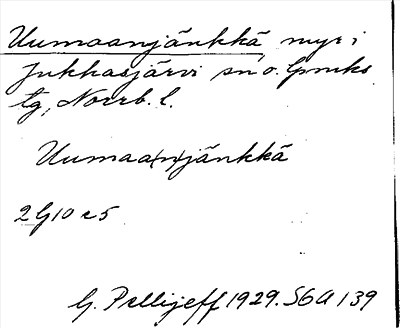 Uumaanjänkkä, myr i
Jukkasjärvi sn o. Gpmiks
tg, Norrb. l.
Uumaa(n)jänkkä
2910 c5
G. Pellijeff 1929. S6A 139